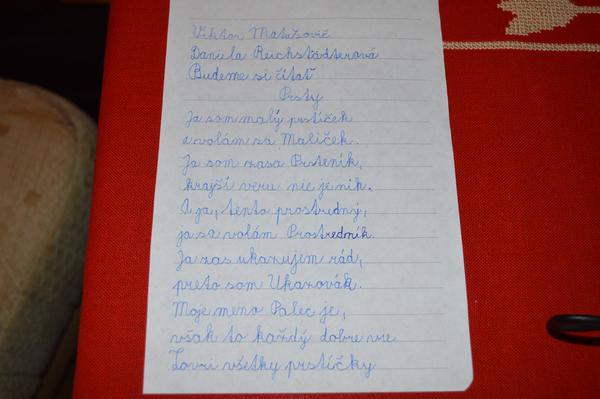 Viktor Matušovič
Daniela Reichstädterová
Budeme si čítať
Prsty
Ja som malý prstíček
a volám sa Malíček.
Ja som zasa Prsteník,
krajší veru nie je nik.
A ja, tento prostredný,
ja sa volám Prostredník.
Ja zas ukazujem rád,
preto som Ukazovák.
Moje meno Palec je,
však to každý dobre vie
Zovri všetky prstíčky